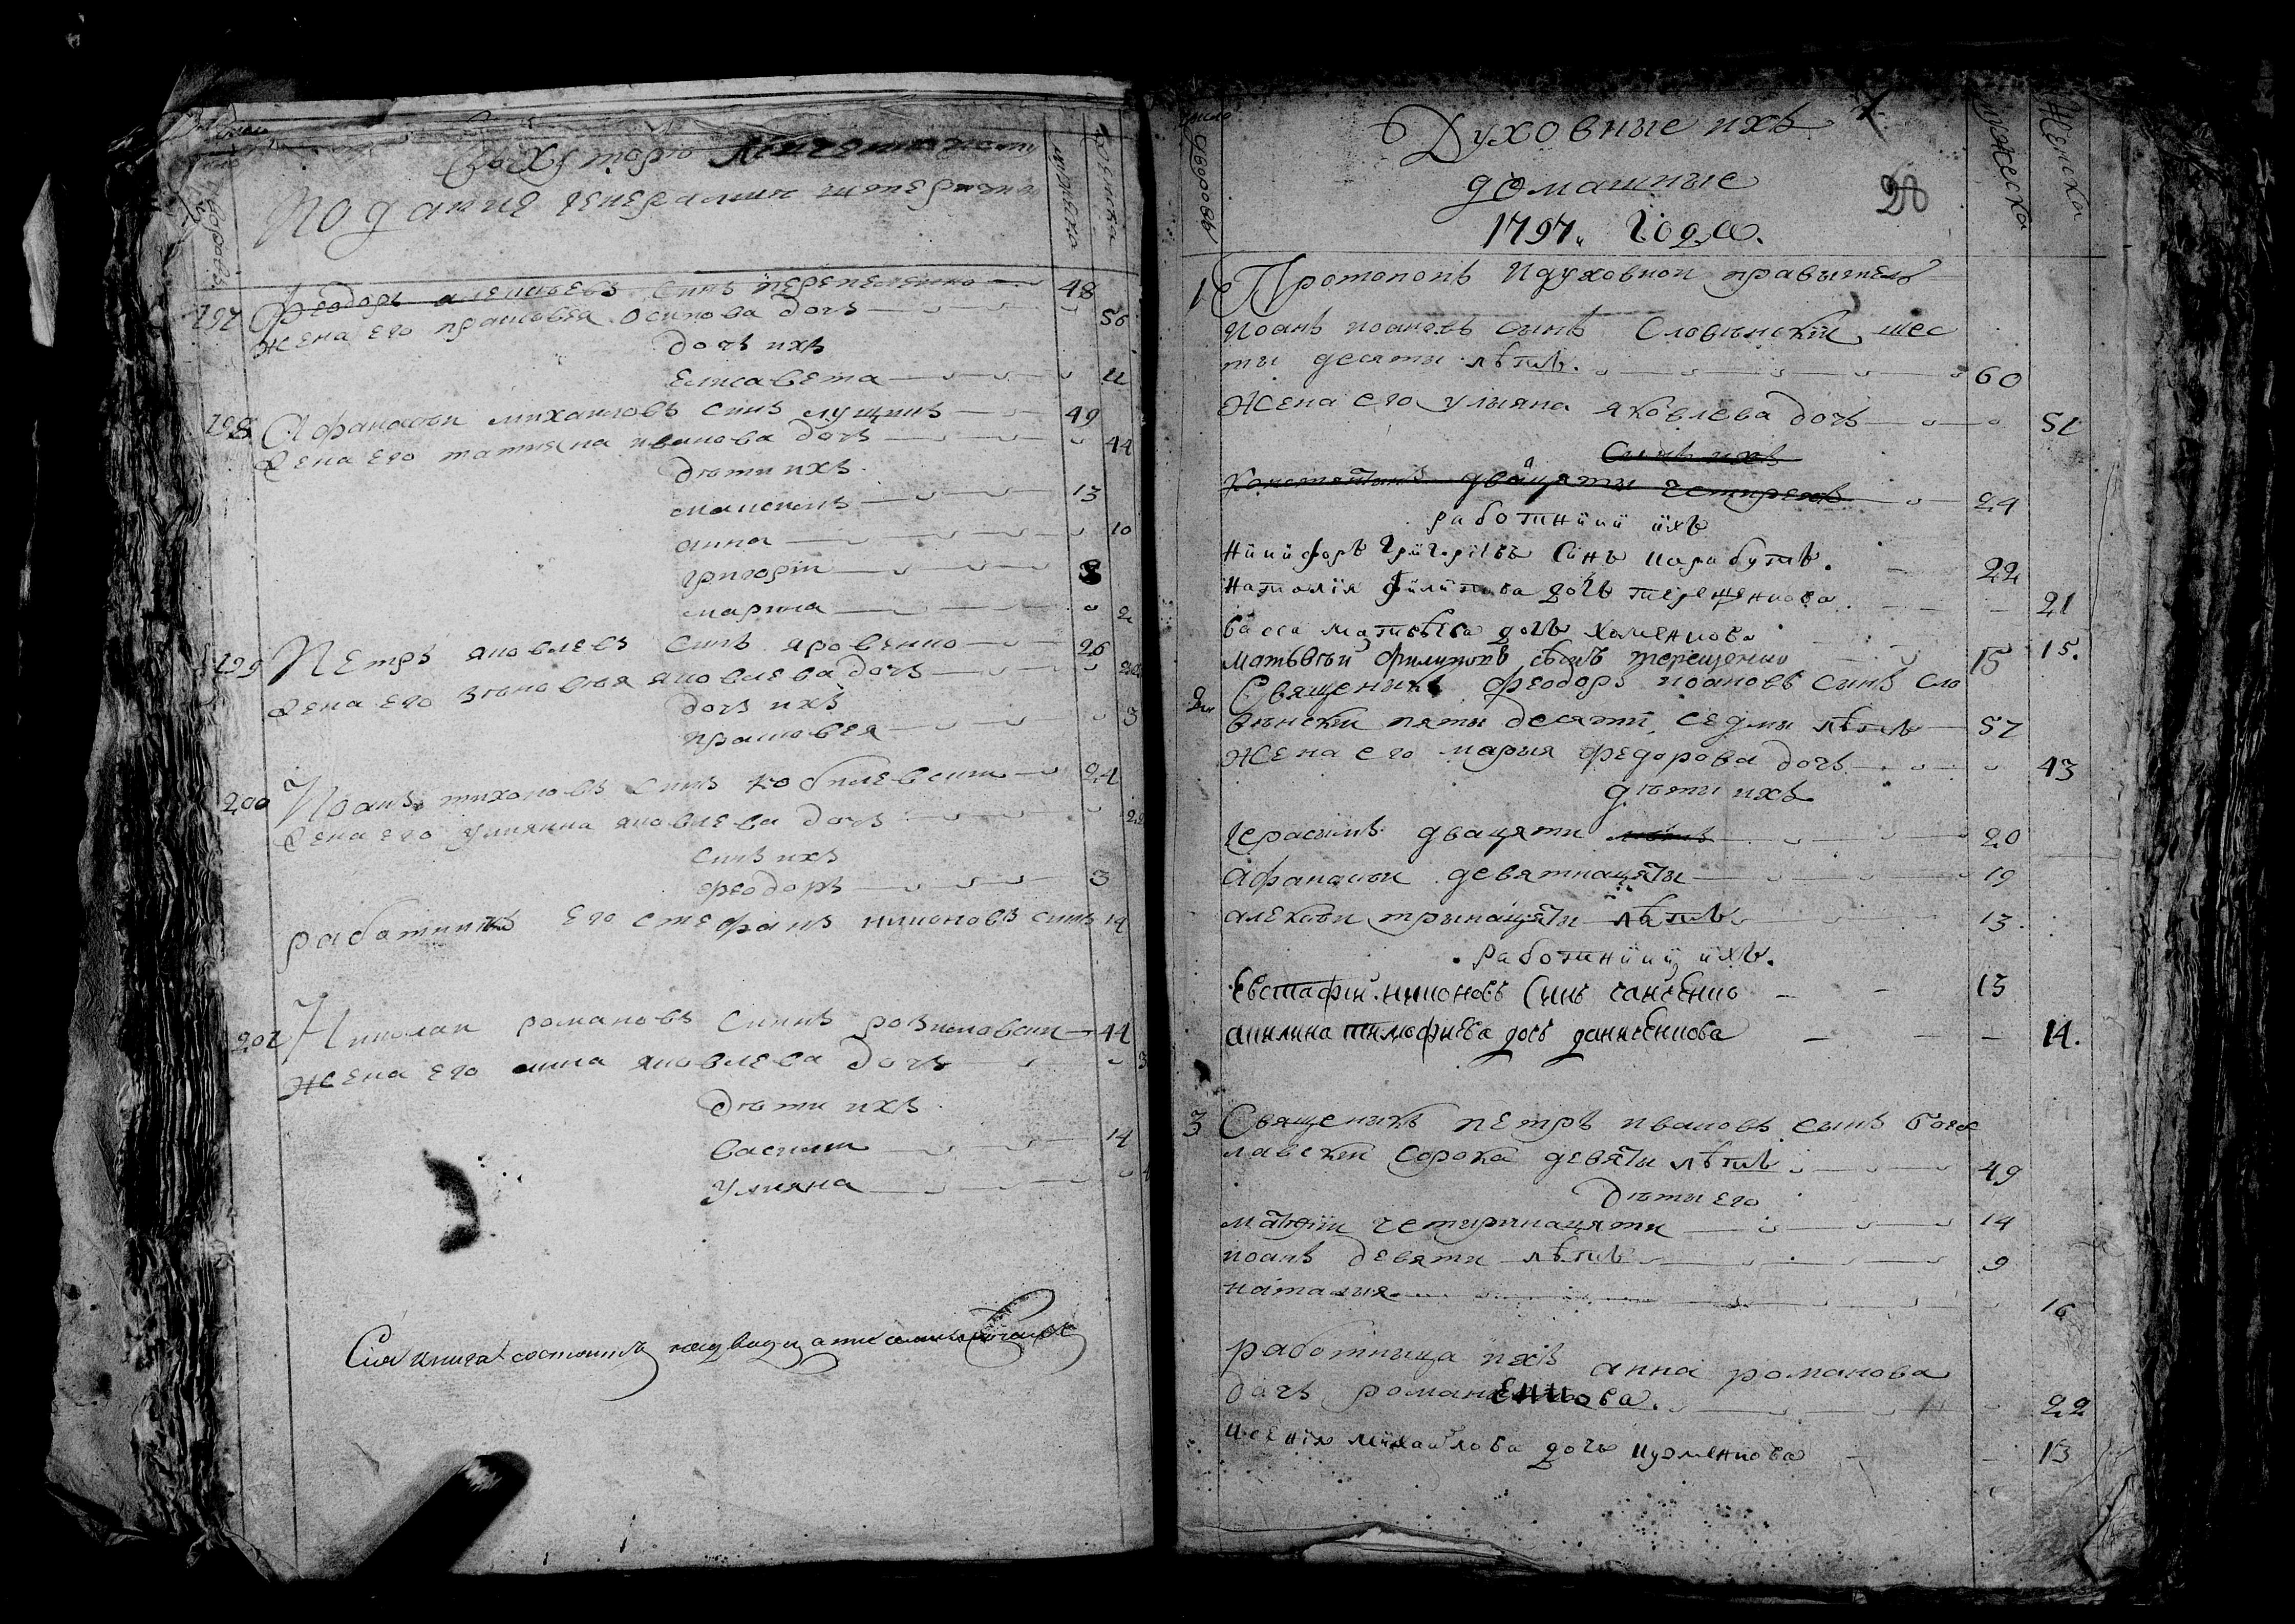 Подание генералши
мужеска
женска
197 Феодоръ алеѯиевъ синъ перепеленко 48
Жена его прасковѣя Осипова дочъ 56
дочъ ихъ
Елисавета 11
198 Афанасѣи михаиловъ синъ лущикъ 49
Жена его татияна иванова дочъ 44
дѣти ихъ
13
анна 10
григорѣи 8
марина 2
199 Петръ яковлевъ синъ яровенко 26
Жена его зѣновѣя яковлева дочъ
дочъ ихъ
прасковѣя 3
200 Иоанъ тихоновъ синъ кобилевски 24
Жена его улияна яковлева дочъ
синъ ихъ
Феодоръ 3
работникъ его стефанъ никоновъ синъ 14
201 Николаи романовъ синъ розколовски 44
Жена его анна яковлева дочъ
дѣти ихъ
василии 14
Улияна
Сия книга состоитъ
число
дворовъ
Духовные ихъ
домашные
28
1797 года.
Мужеска
Женска
1 Протопопъ и духовной правытель
Иоанъ иоановъ сынъ Словѣнский шес
ты десяты лѣтъ. 60
Жена его улияна яковлева дочъ 51
Сынъ ихъ
Константинъ двацяты четирехъ 24
работники ихъ
Никифоръ григориевъ синъ карабутъ. 22
Наталія филипова дочъ терещенкова. 21
васса матвѣева дочъ хоменкова 15.
Матьвѣй филиповъ сынъ терещенко 15
2 Священикъ феодоръ иоановъ синъ сло
вѣнски пяты десяти седмы лѣтъ 57
Жена его мария федорова дочъ 43
дѣти ихъ
Герасимъ двацяти лѣтъ 20
Афанасѣи девятнацяты 19
алеѯѣи трынацяты лѣтъ 13.
работники ихъ.
Евстафій никоновъ синъ санченко 13
акилина тимофиева дочъ данченкова 14.
3 Священикъ петръ ивановъ сынъ богос
лавский сорока девяты лѣтъ 49
дѣти его
матвѣи четирнацяти 14
иоанъ девяти лѣтъ 9
наталия 16
работница ихъ анна романова
дочъ романенкова. 22
Ксенія михаилова дочъ кузменкова 13